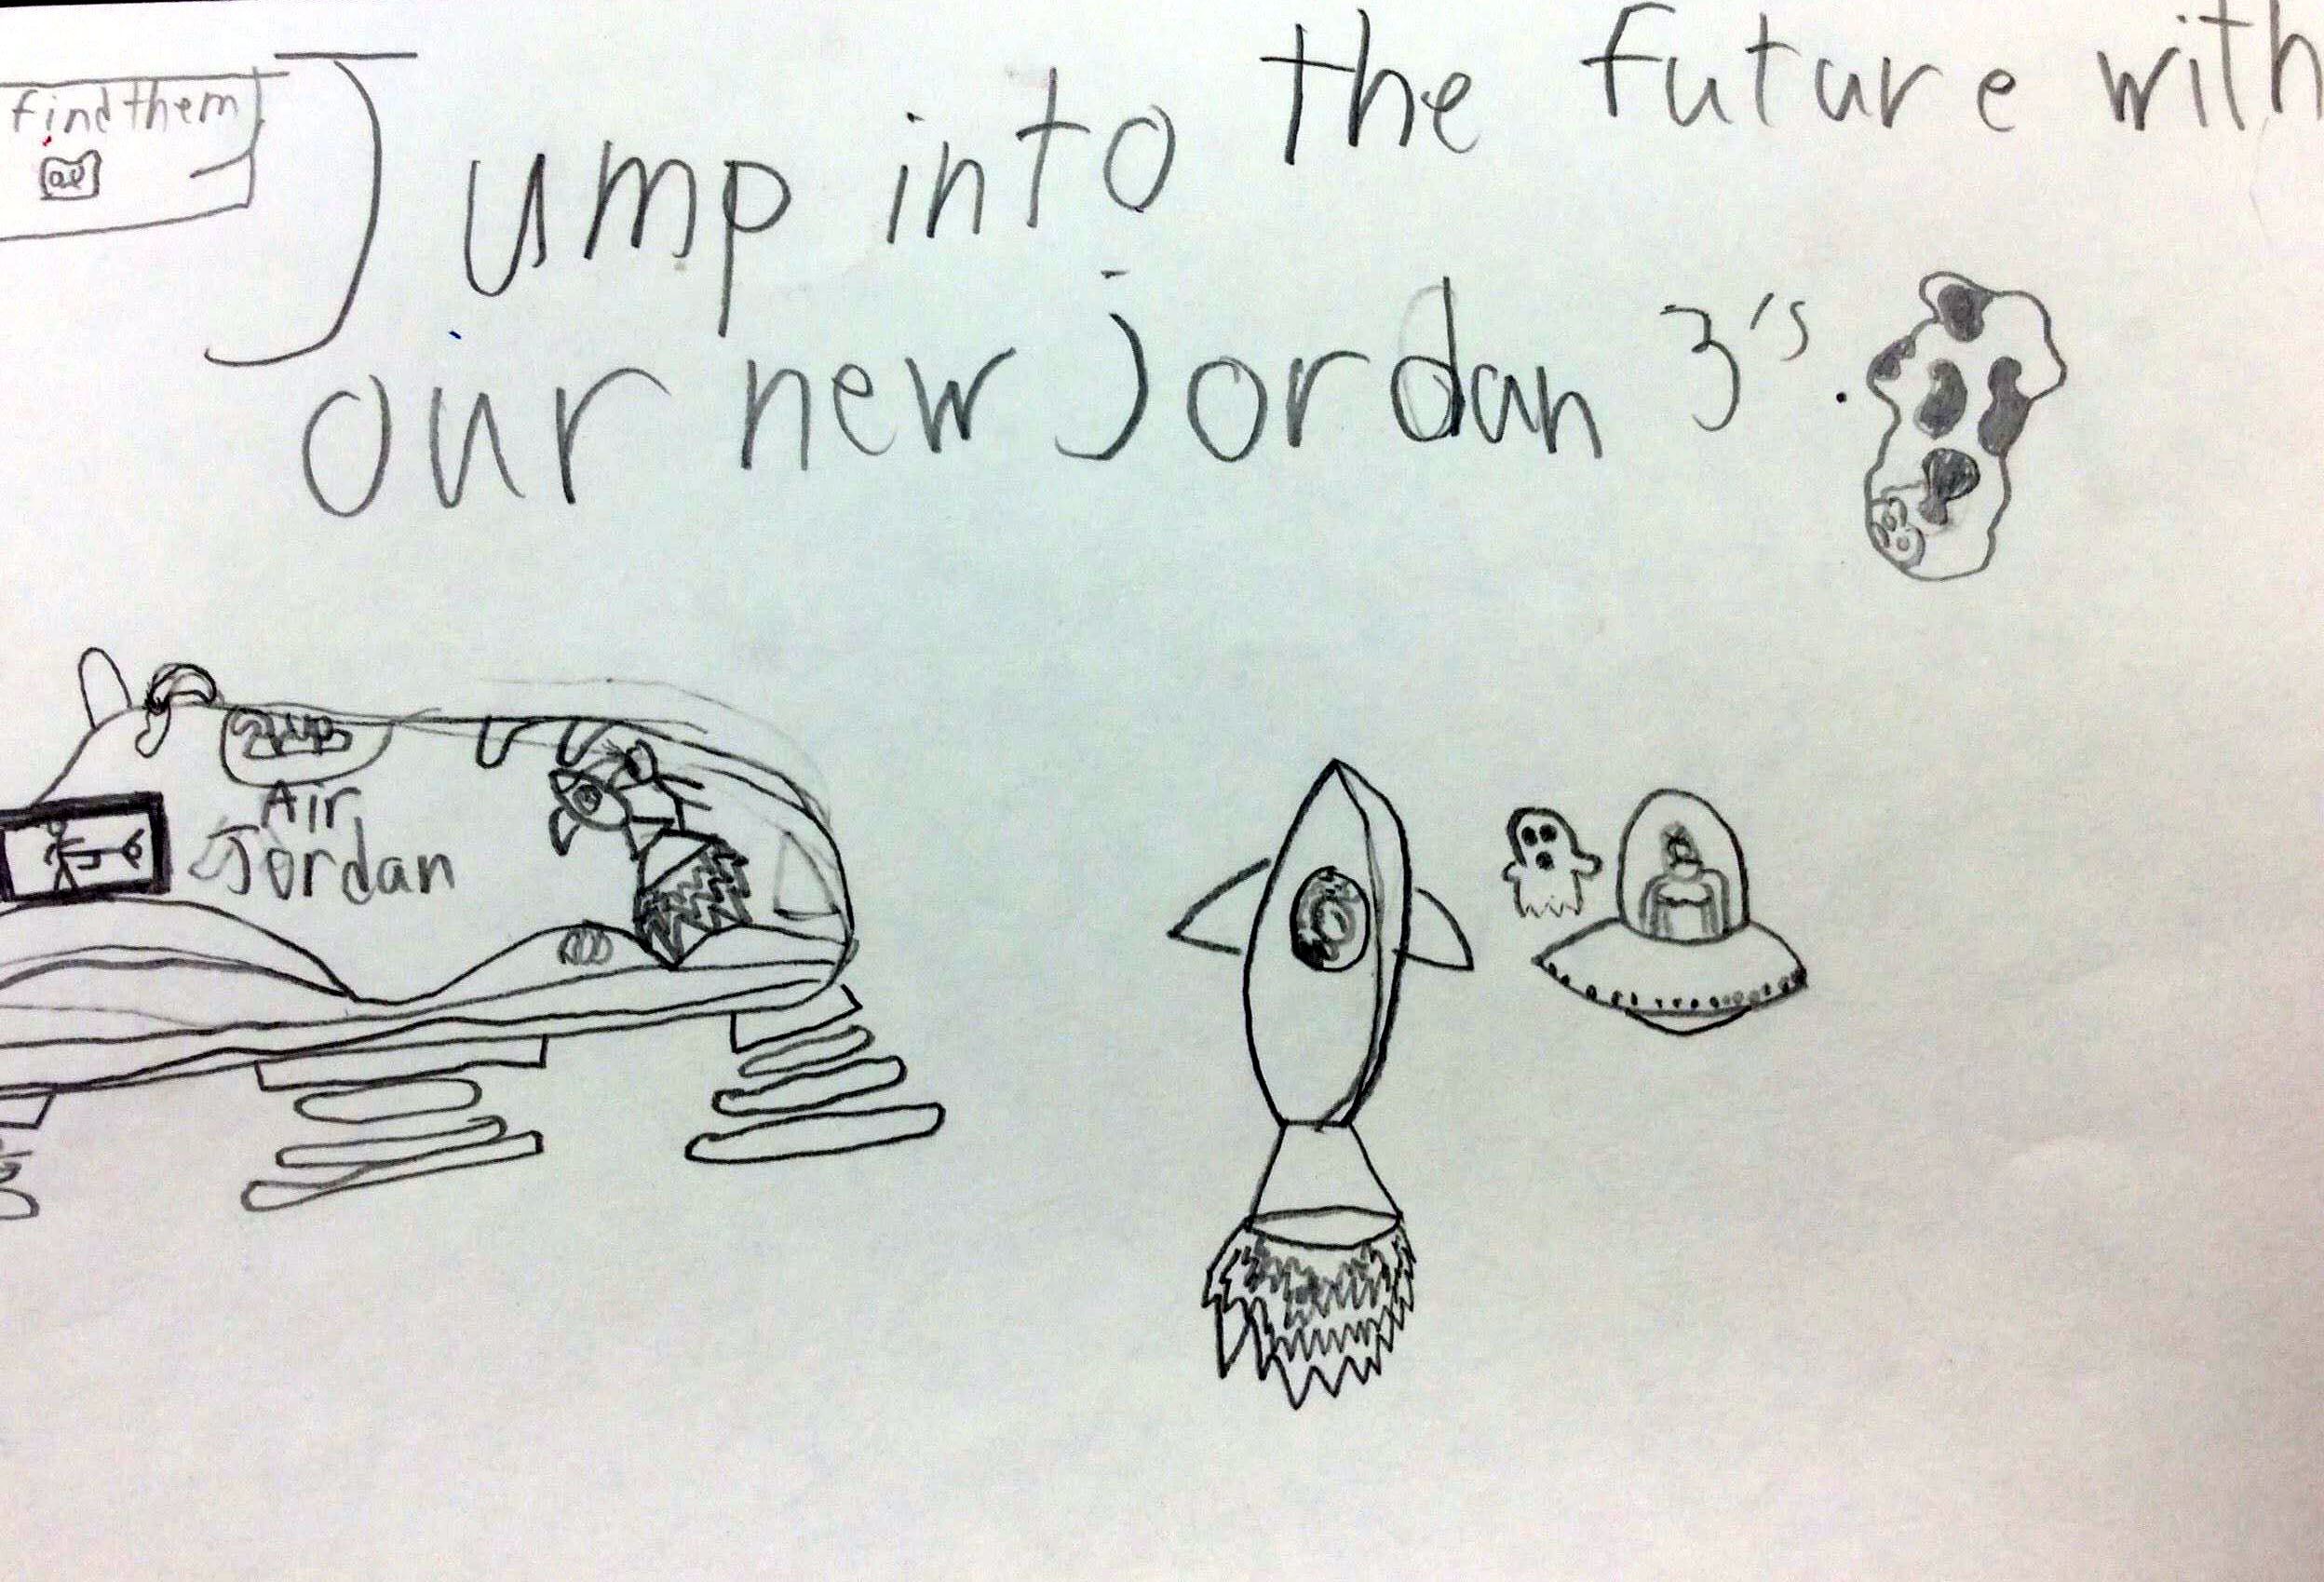 find them
Jump into the future with
our new jordan 3's.
Air
Jordan